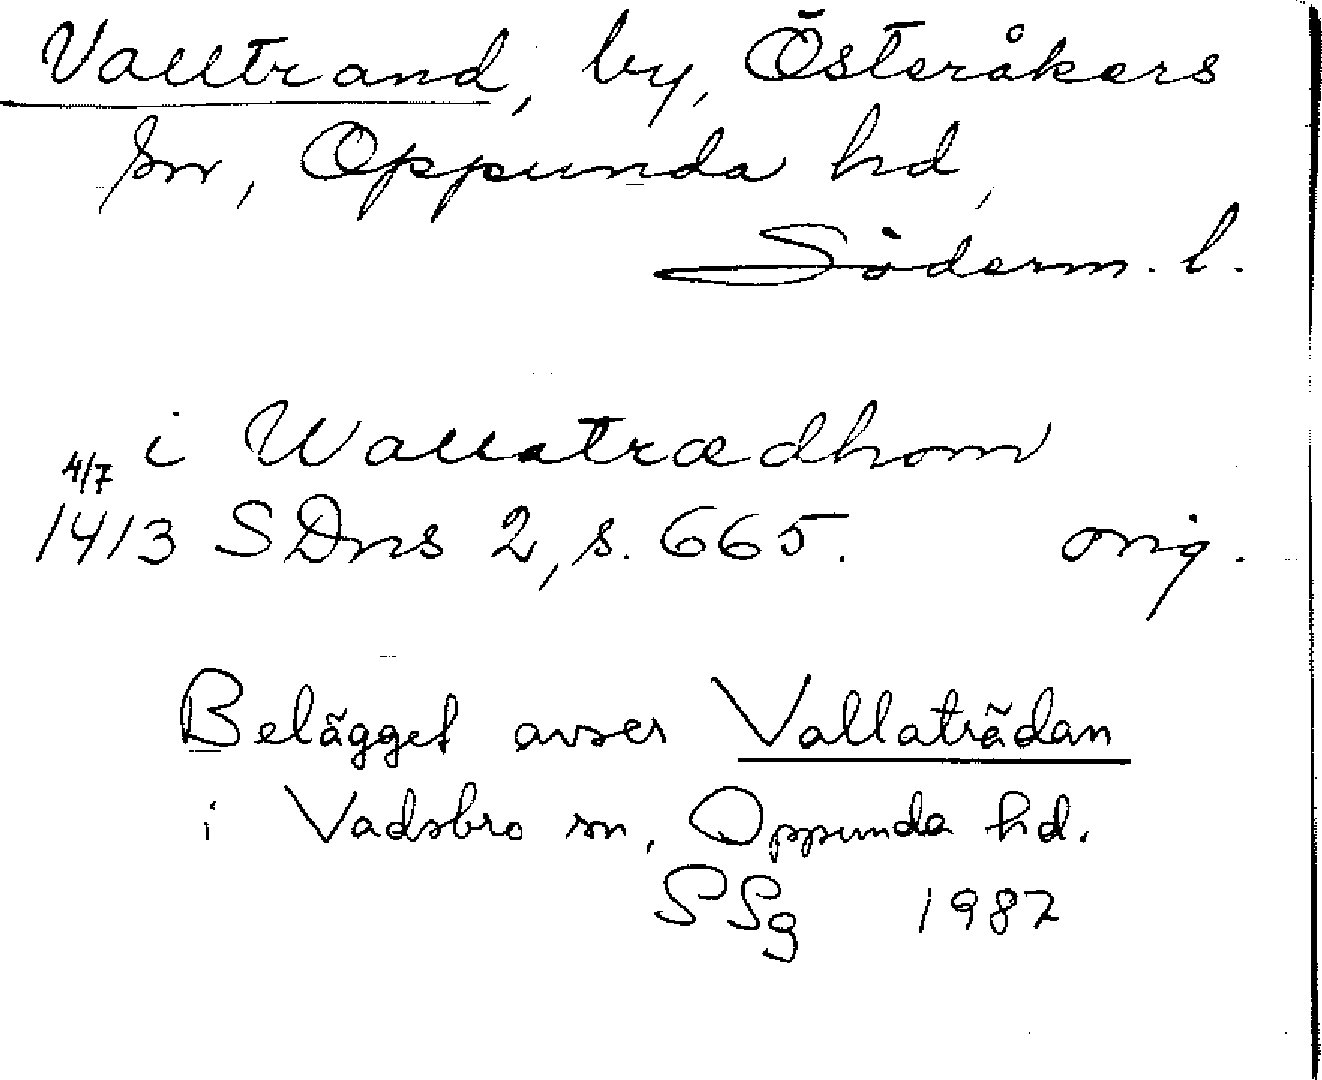 Valltrand, by, Österåkers
sn, Oppunda hd,
Söderm. l.
i Wallatrædhom
4/7
1413 SDns 2, s. 665. orig.
Belägget avser Vallaträdan
i Vadsbro sn, Oppunda hd.
SSg 1987